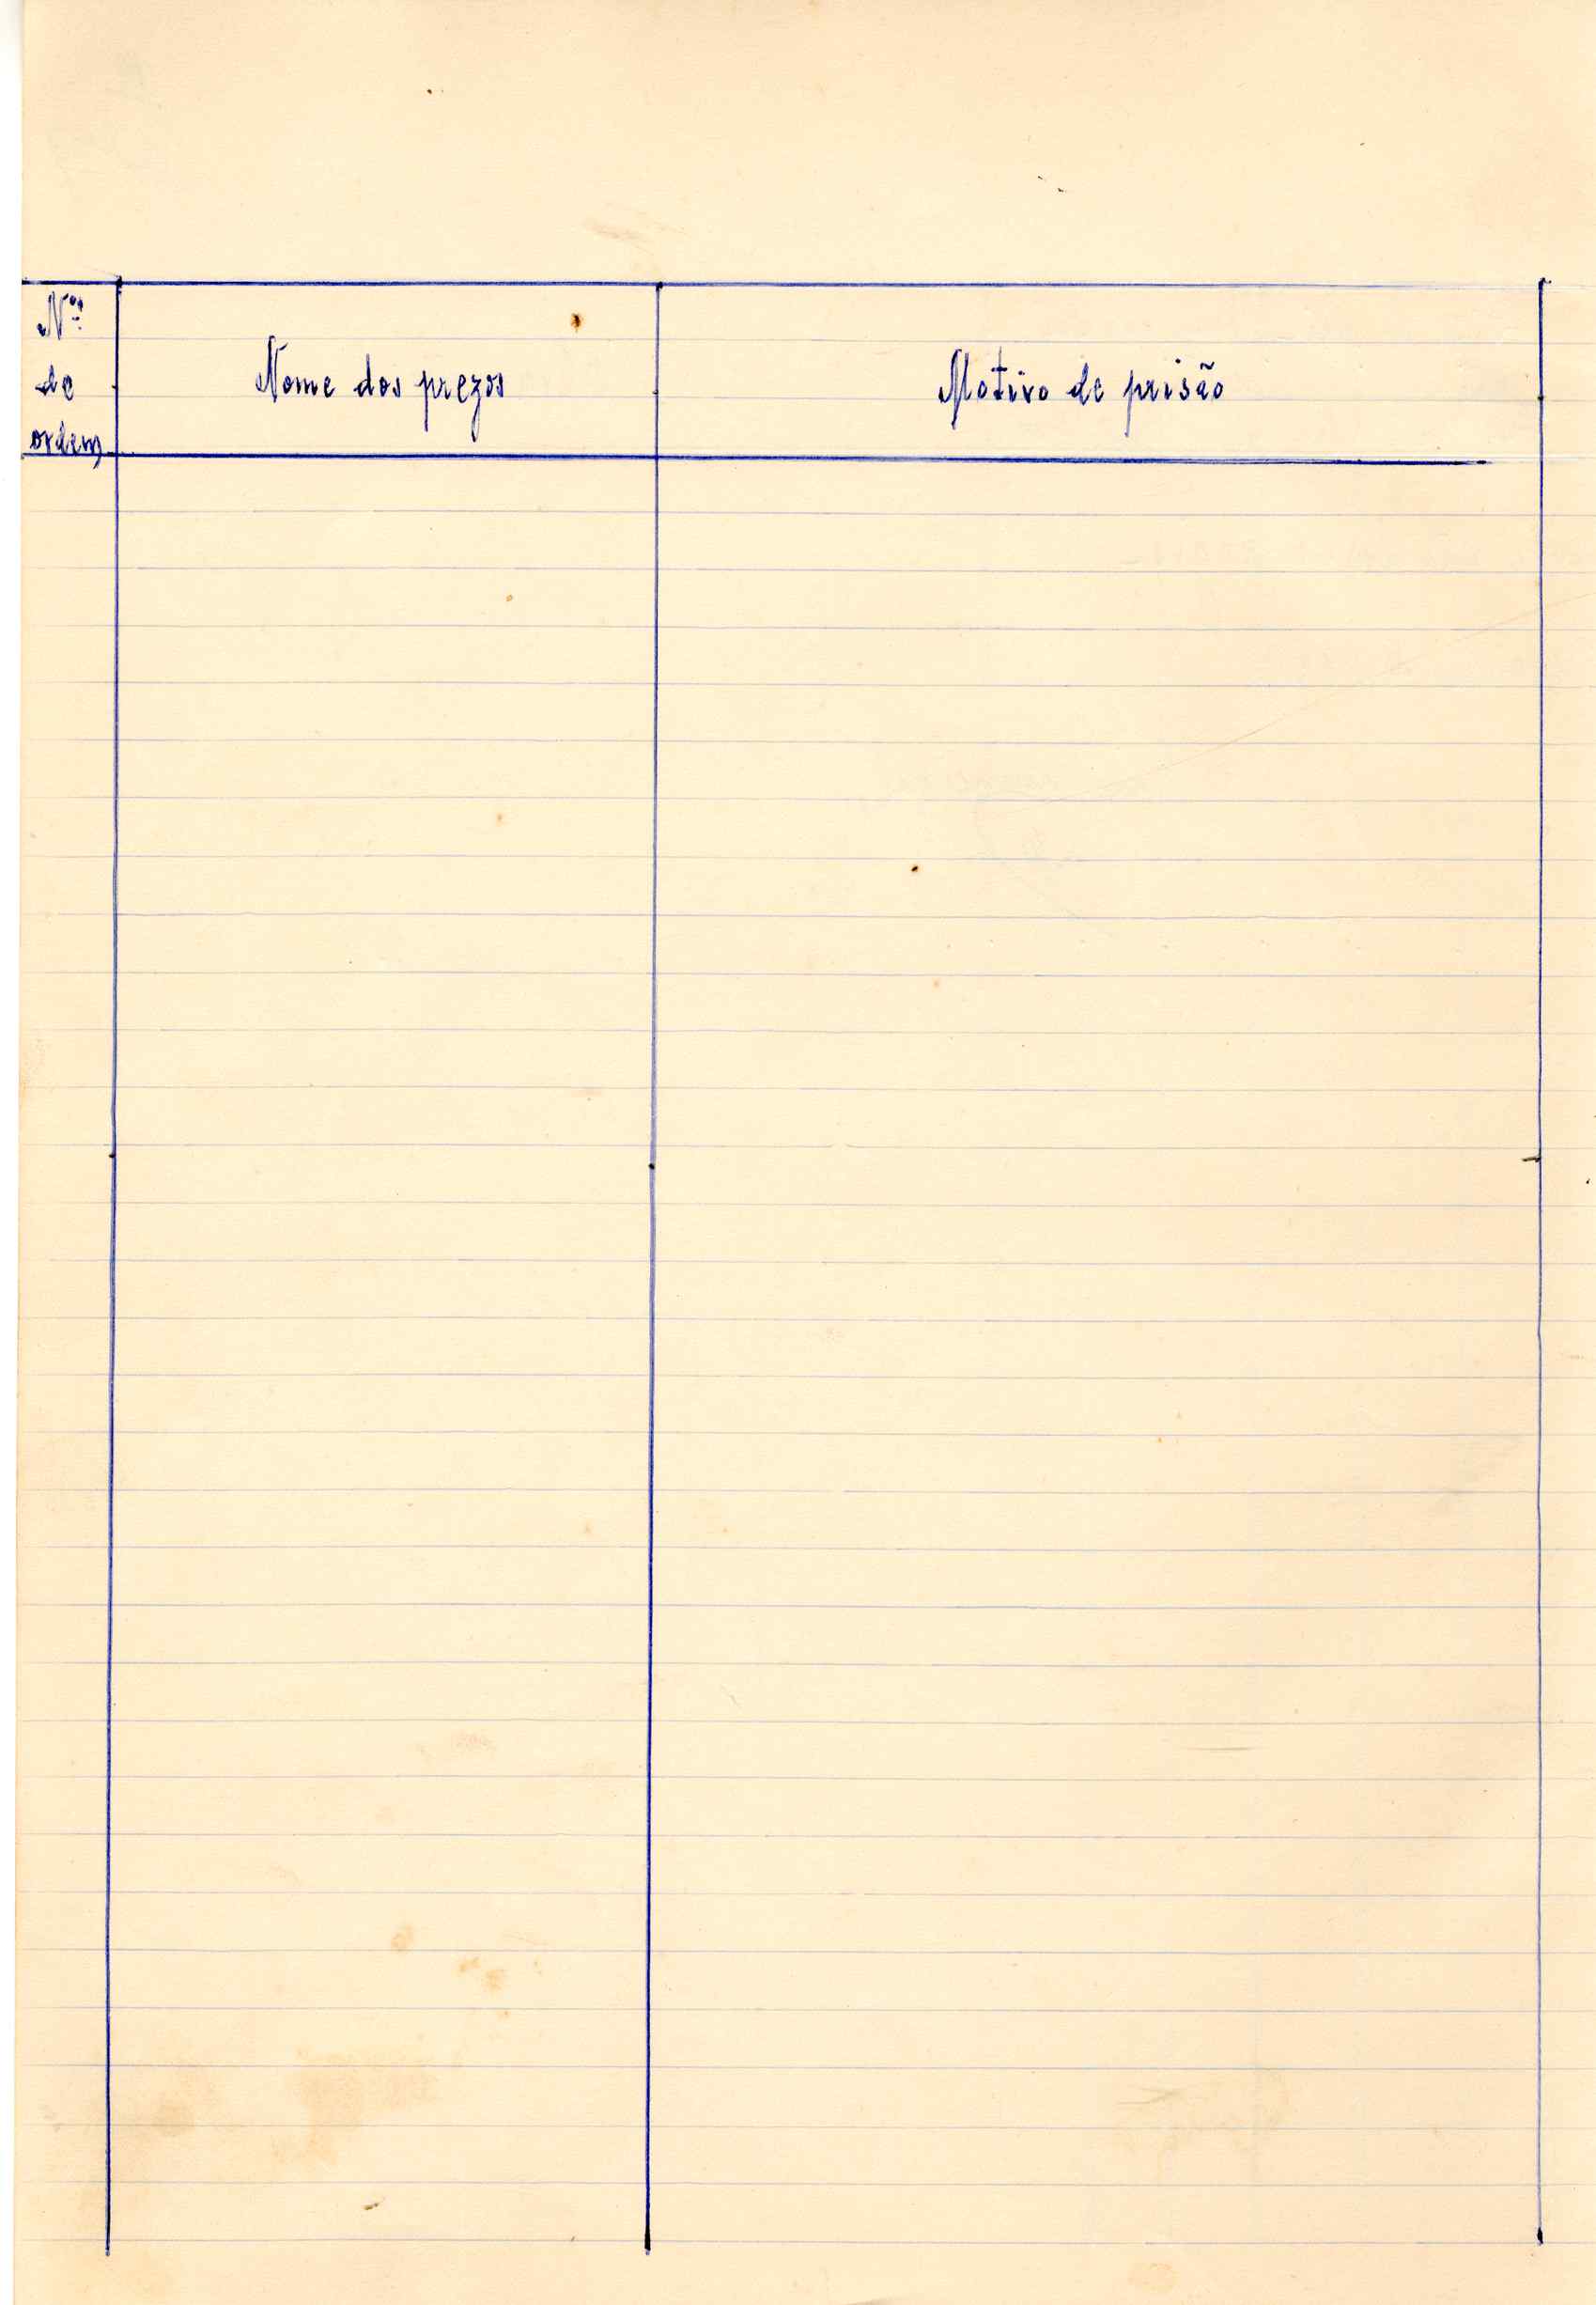 Nº:
de
ordem
Nome dos prezos
Motivo de prisão